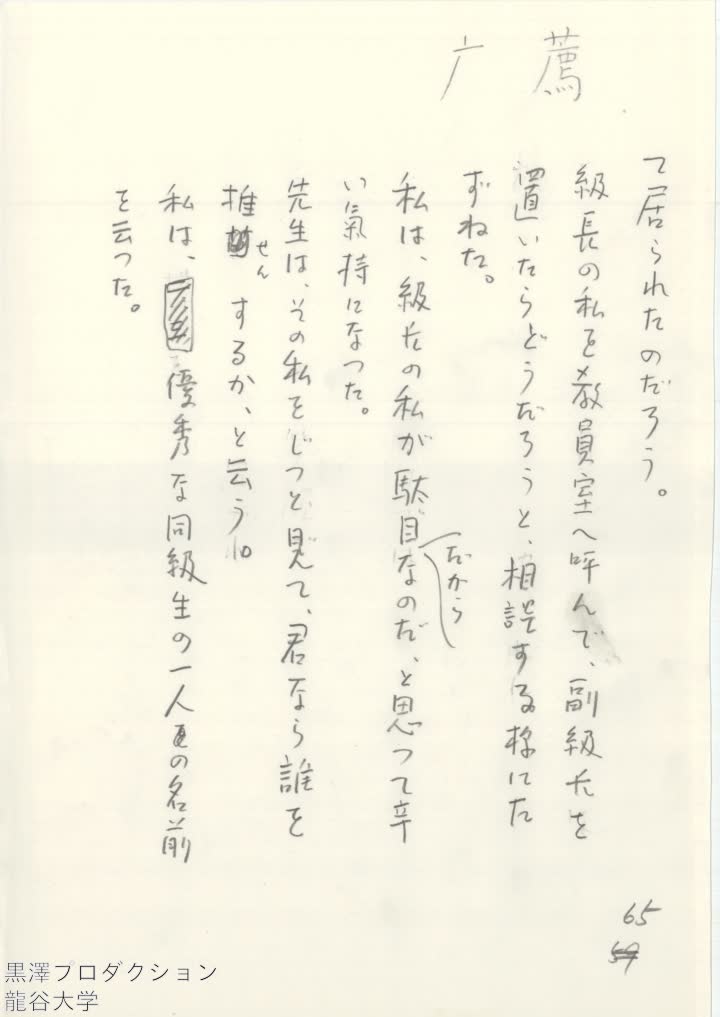 薦
て居られたのだろう。
級長の私を教員室へ呼んで、副級長を
置いたらどうだろうと、相談する様にた
ずねた。
私は、級長の私が駄目なのだ、と思つて辛
だから
い氣持になつた。
先生は、その私をじつと見て、君なら誰を
推せんするか、と云う。
私は、優秀な同級生の一人の名前
を云つた。
65
59
黒澤プロダクション
龍谷大学